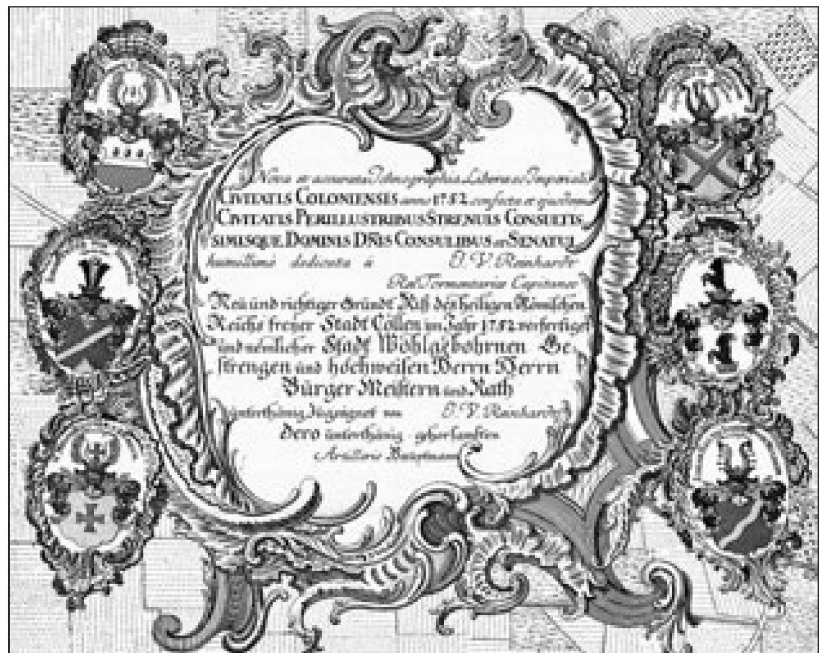 Nova et accurata Ichnographia Liberae ac Imperialis
CIVITATIS COLONIENSIS anno 1752 confecta et quidem
CIVITATIS PERILLUSTRIBUS STRENUIS CONSULTIS
SIMISQUE DOMINIS DÑIS CONSULIBUS et SENATUI
humillimè dedicata à J. V. Reinhardt
Rei Tormentariae Capitaneo
Neü und richtiger Gründt Riß des heiligen Römischen
Reichs freyer Stadt Cöllen im Jahr 1752 verfertiget
und nemlicher Stadt Wohlgebohrnen Ge-
strengen und hochweisen Herrn Herrn
Bürger Meistern und Rath
ünterthänig zügeignet von J. V. Reinhardt
dero ünterthänig gehorsambsten
Artillerie Hauptmann